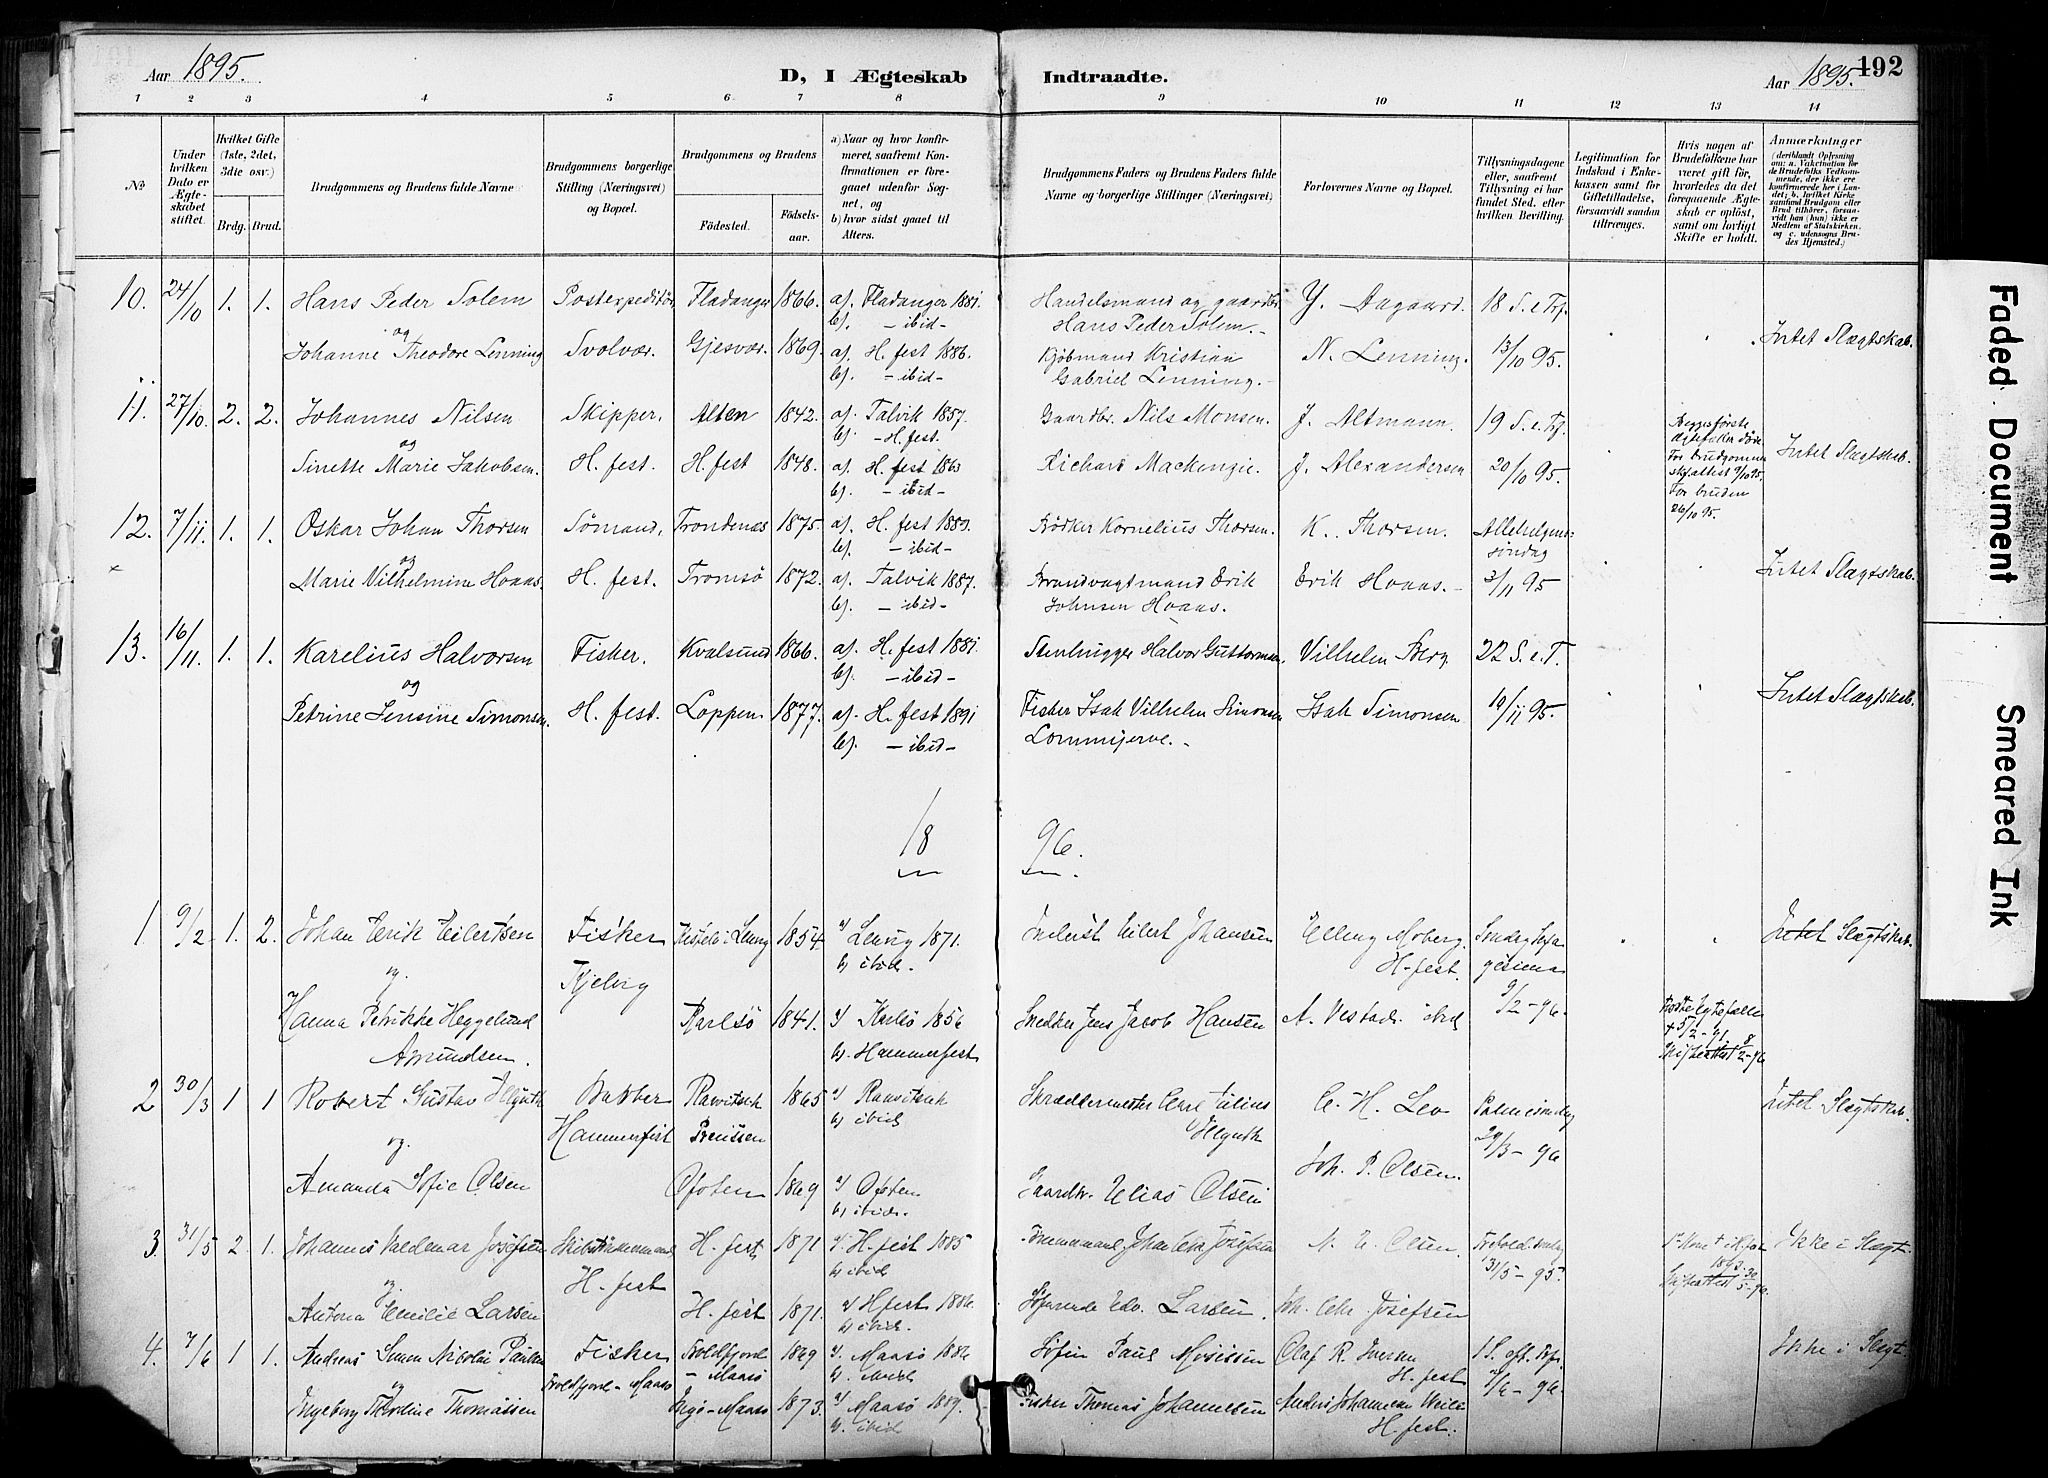 Aar 1895.
D, I Ægteskab
Indtraadte.
Aar 1895.
192
1 2 3 4 5 6 7 8 9 10 11 12 13 14
No
Under hvilken Dato er Ægteskabet stiftet.
Hvilket Gifte (1ste, 2det, 3die osv.)
Brdg. Brud.
Brudgommens og Brudens fulde Navne
Brudgommens borgerlige Stilling (Næringsvei) og Bopæl.
Brudgommens og Brudens
Fødested.
Fødselsaar.
a) Naar og hvor konfirmeret, saafremt Konfirmationen er foregaaet udenfor Sognet, og
b) hvor sidst gaaet til Alters.
Brudgommens Faders og Brudens Faders fulde Navne og borgerlige Stillinger (Næringsvei)
Forlovernes Navne og Bopæl.
Tillysningsdagene eller, saafremt Tillysning ei har fundet Sted, efter hvilken Bevilling.
Legitimation for Indskud i Enkekassen samt for Giftetilladelse, forsaavidt saadan tiltrænges.
Hvis nogen af Brudefolkene har været gift før, hvorledes da det foregaaende Ægteskab er opløst, samt om lovligt Skifte er holdt.
Anmærkninger (deriblandt Oplysning om: a. Vakcination for de Brudefolks Vedkommende, der ikke ere konfirmerede her i Landet; b. hvilket Kirkesamfund Brudgom eller Brud tilhører, forsaavidt han (hun) ikke er Medlem af Statskirken, og c. udensogns Brudes Hjemsted.)
10. 24/10 1. 1. Hans Peder Solem Postexpeditør Fladanger 1866. a). Fladanger 1881. Handelsmand og gaardbr. Y. Aagaard. 18 S. e. Trf.
og b). - ibid - Hans Peder Solem.-
Johanne Theodore Lenning Svolvær. Gjesvær. 1869. a). H. fest 1886. Kjøbmand Kristian N. Lenning. 13/10 95. Intet Slægtskab.
b). - ibid - Gabriel Lenning.-
11. 27/10. 2. 2. Johannes Nilsen Skipper. Alten 1842. a). Talvik 1857. Gaardbr. Nils Monsen. J. Altmann. 19 S. e. Trf. Begges første
og b). - H. fest. ægtefæller døde
Sinette Marie Jakobsen. H. fest. H. fest 1848. a). H. fest 1863 Richard Mackenzie. J. Alexandersen 20/10 95. For brudgommen Intet Slægtskab.
b). - ibid - skifattest 9/10 95.
For bruden
26/10 95.
12. 7/11. 1. 1. Oskar Johan Thorsen Sömand, Trondenæs 1875. a). H. fest 1889. Bödker Kornelius Thorsen. K. Thorsen. Allehelgenssöndag
og b). - ibid -
Marie Vilhelmine Hoaas. H. fest. Tromsö 1872. a). Talvik 1887. Brandvagtmand Erik Erik Hoaas.- 3/11 95 Intet Slægtskab.
b). - ibid - Johnsen Hoaas.
13. 16/11. 1. 1. Karelius Halvorsen Fisker. Kvalsund 1866. a). H. fest 1881. Stenhugger Halvor Guttormsen. Vilhelm Berg. 22 S. e. T.
og b). - ibid -
Petrine Jensine Simonsen. H. fest. Loppen. 1877. a). H. fest 1891 Fisker Isak Vilhelm Simonsen Isak Simonsen 10/11 95. Intet Slægtskab.
b). - ibid - Lommijerve.-
18 96.
1 9/2 1. 2. Johan Erik Eilertsen Fisker 1854. a) 1871. Eilert Johansen Elling Moberg. Intet Slægtskab.
og Kjelvig b) ibid. H. fest.
Hanna Petrikke Heggelund Karlsö 1841. a) Karlsö 1856 Snedker Jens Jacob Hansen A. Vestad. ibid 9/2 - 96.
Amundsen. b). Hammerfest
2 30/3 1 1 Robert Gustav Rawitsch 1865 a) Rawitsch Skræddermester Carl Julius C. H. Leo Palmesöndag Intet Slægtskab.
og. Hammerfest Preussen b) ibid 29/3 - 96
Amanda Sofie Olsen Ofoten 1869 a) Ofoten Gaardbr. Elias Olsen Joh. P. Olsen.
b) ibid.
3. 31/5 2. 1. Johannes Valdemar Josefsen H. fest 1871 a) H. fest 1885 N. E. Olsen. Trefold. söndag Ikke i Slægt.
og H. fest b) ibid 31/5 - 95.
Antona Emilie Larsen H. fest 1871. a) H. fest 1886. Edv. Larsen. Joh. Chr. Josefsen
b) ibid.
4. 7/6 1 1. Andreas Simon Nicolai Paulsen Fisker Troldfjord 1869 a). Maasö 1886 Paul Mosissen Olaf R. Iversen 1 S. eft. Trf. Ikke i Slægt.
og Troldfjord - Maasö - Maasö b). ibid H. fest 7/6 - 96.
Ingeborg Thomassen Ingö - Maasö 1873. a) Maasö 1889. Fisker Thomas Johannesen
b). ibid H. fest.
Faded Document
Smeared Ink